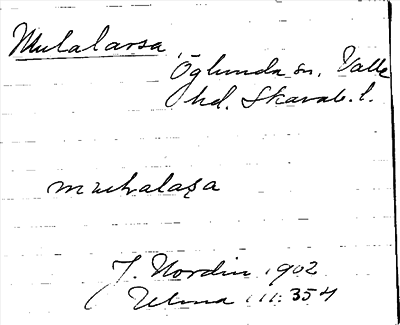 Mulalarsa,
Öglunda sn, Valle
hd. Skarab. l.
J. Nordin 1902
111:354